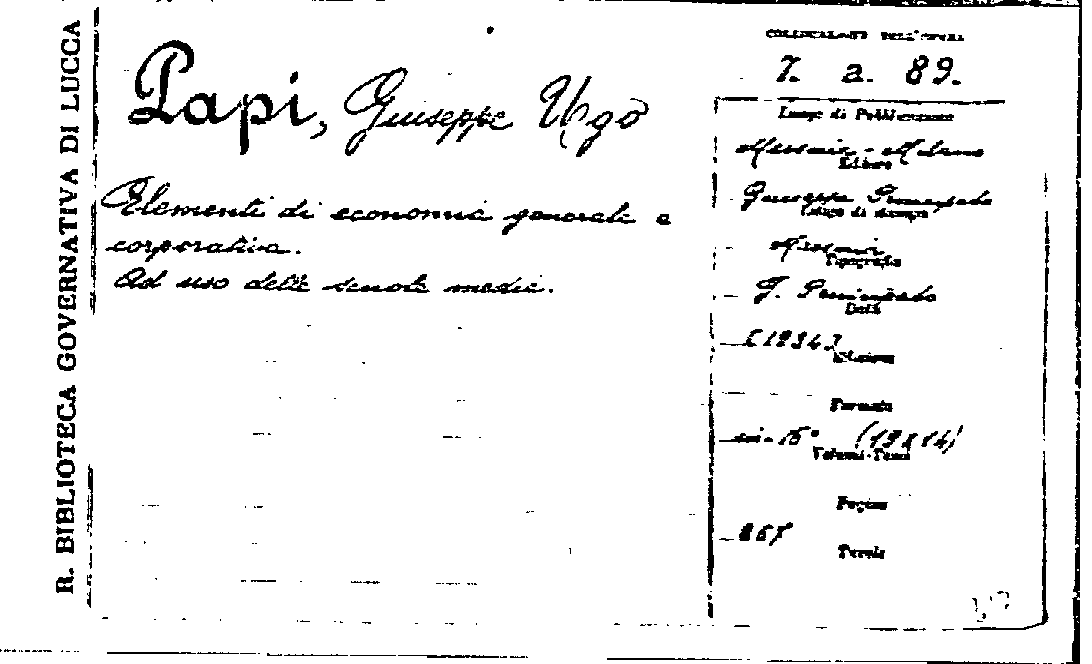 R. BIBLIOTECA GOVERNATIVA DI LUCCA
Papi, Giuseppe Ugo
Elementi di economia generale e
corporativa.
Ad uso delle scuole medie.
COLLOCAZIONE DELL'OPERA
7. a. 89.
Luogo di Pubblicazione
Milano
Editore
Giuseppe Principato
Luogo di stampa
Tipografia
G. Principato
Data
Edizione
Formato
in-16° (19x14)
Volumi-Tomi
Pagine
Tavole